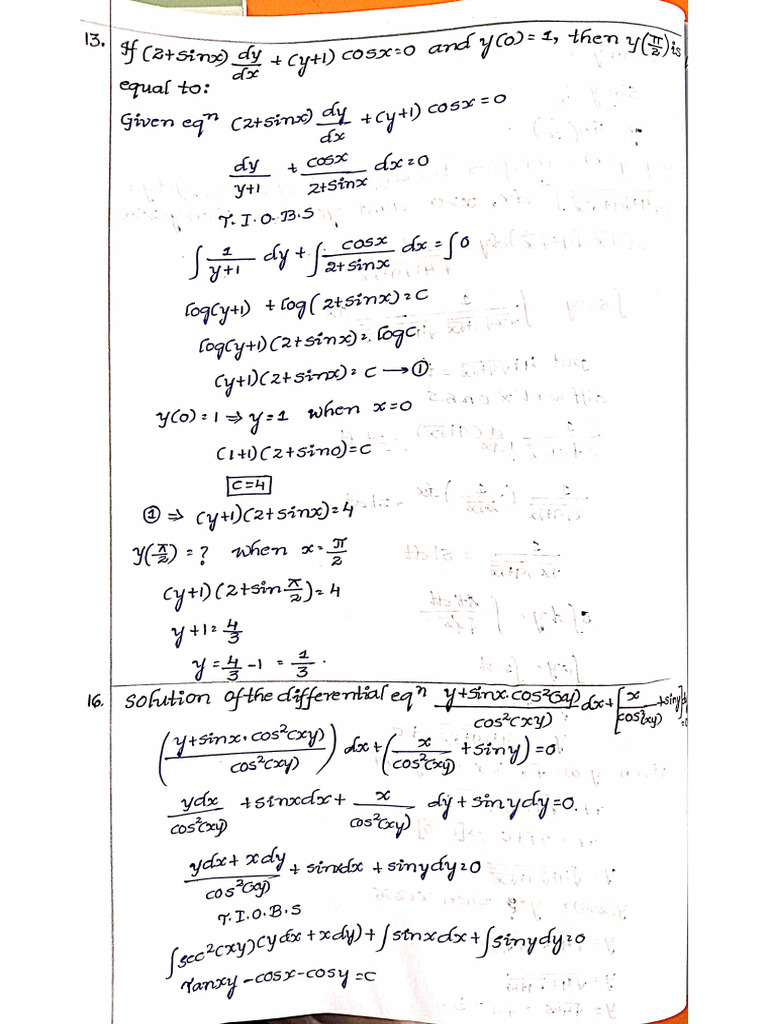 13. If (2+sinx) dy/dx + (y+1) cosx=0 and y(0)=1, then y(π/2) is
equal to:
Given eqⁿ (2+sinx) dy/dx + (y+1) cosx=0
dy/y+1 + cosx/2+sinx dx=0
T.I.O.B.S
∫ 1/y+1 dy + ∫ cosx/2+sinx dx = ∫0
log(y+1) + log(2+sinx)=c
log(y+1)(2+sinx)=logc
(y+1)(2+sinx)=c → ①
y(0)=1 ⇒ y=1 when x=0
(1+1)(2+sin0)=c
c=4
① ⇒ (y+1)(2+sinx)=4
y(π/2) = ? when x=π/2
(y+1)(2+sin π/2)=4
y+1=4/3
y=4/3 -1 = 1/3.
16. Solution of the differential eqⁿ y+sinx.cos²(xy)/cos²(xy) dx+[x/cos²(xy) +siny]dy=0
(y+sinx.cos²(xy)/cos²(xy)) dx+(x/cos²(xy) +siny)=0
ydx/cos²(xy) +sinxdx+ x/cos²(xy) dy+sinydy=0.
ydx+xdy/cos²(xy) + sinxdx +sinydy=0
T.I.O.B.S
∫sec²(xy)(ydx+xdy)+∫sinxdx+∫sinydy=0
Tanxy-cosx-cosy=c